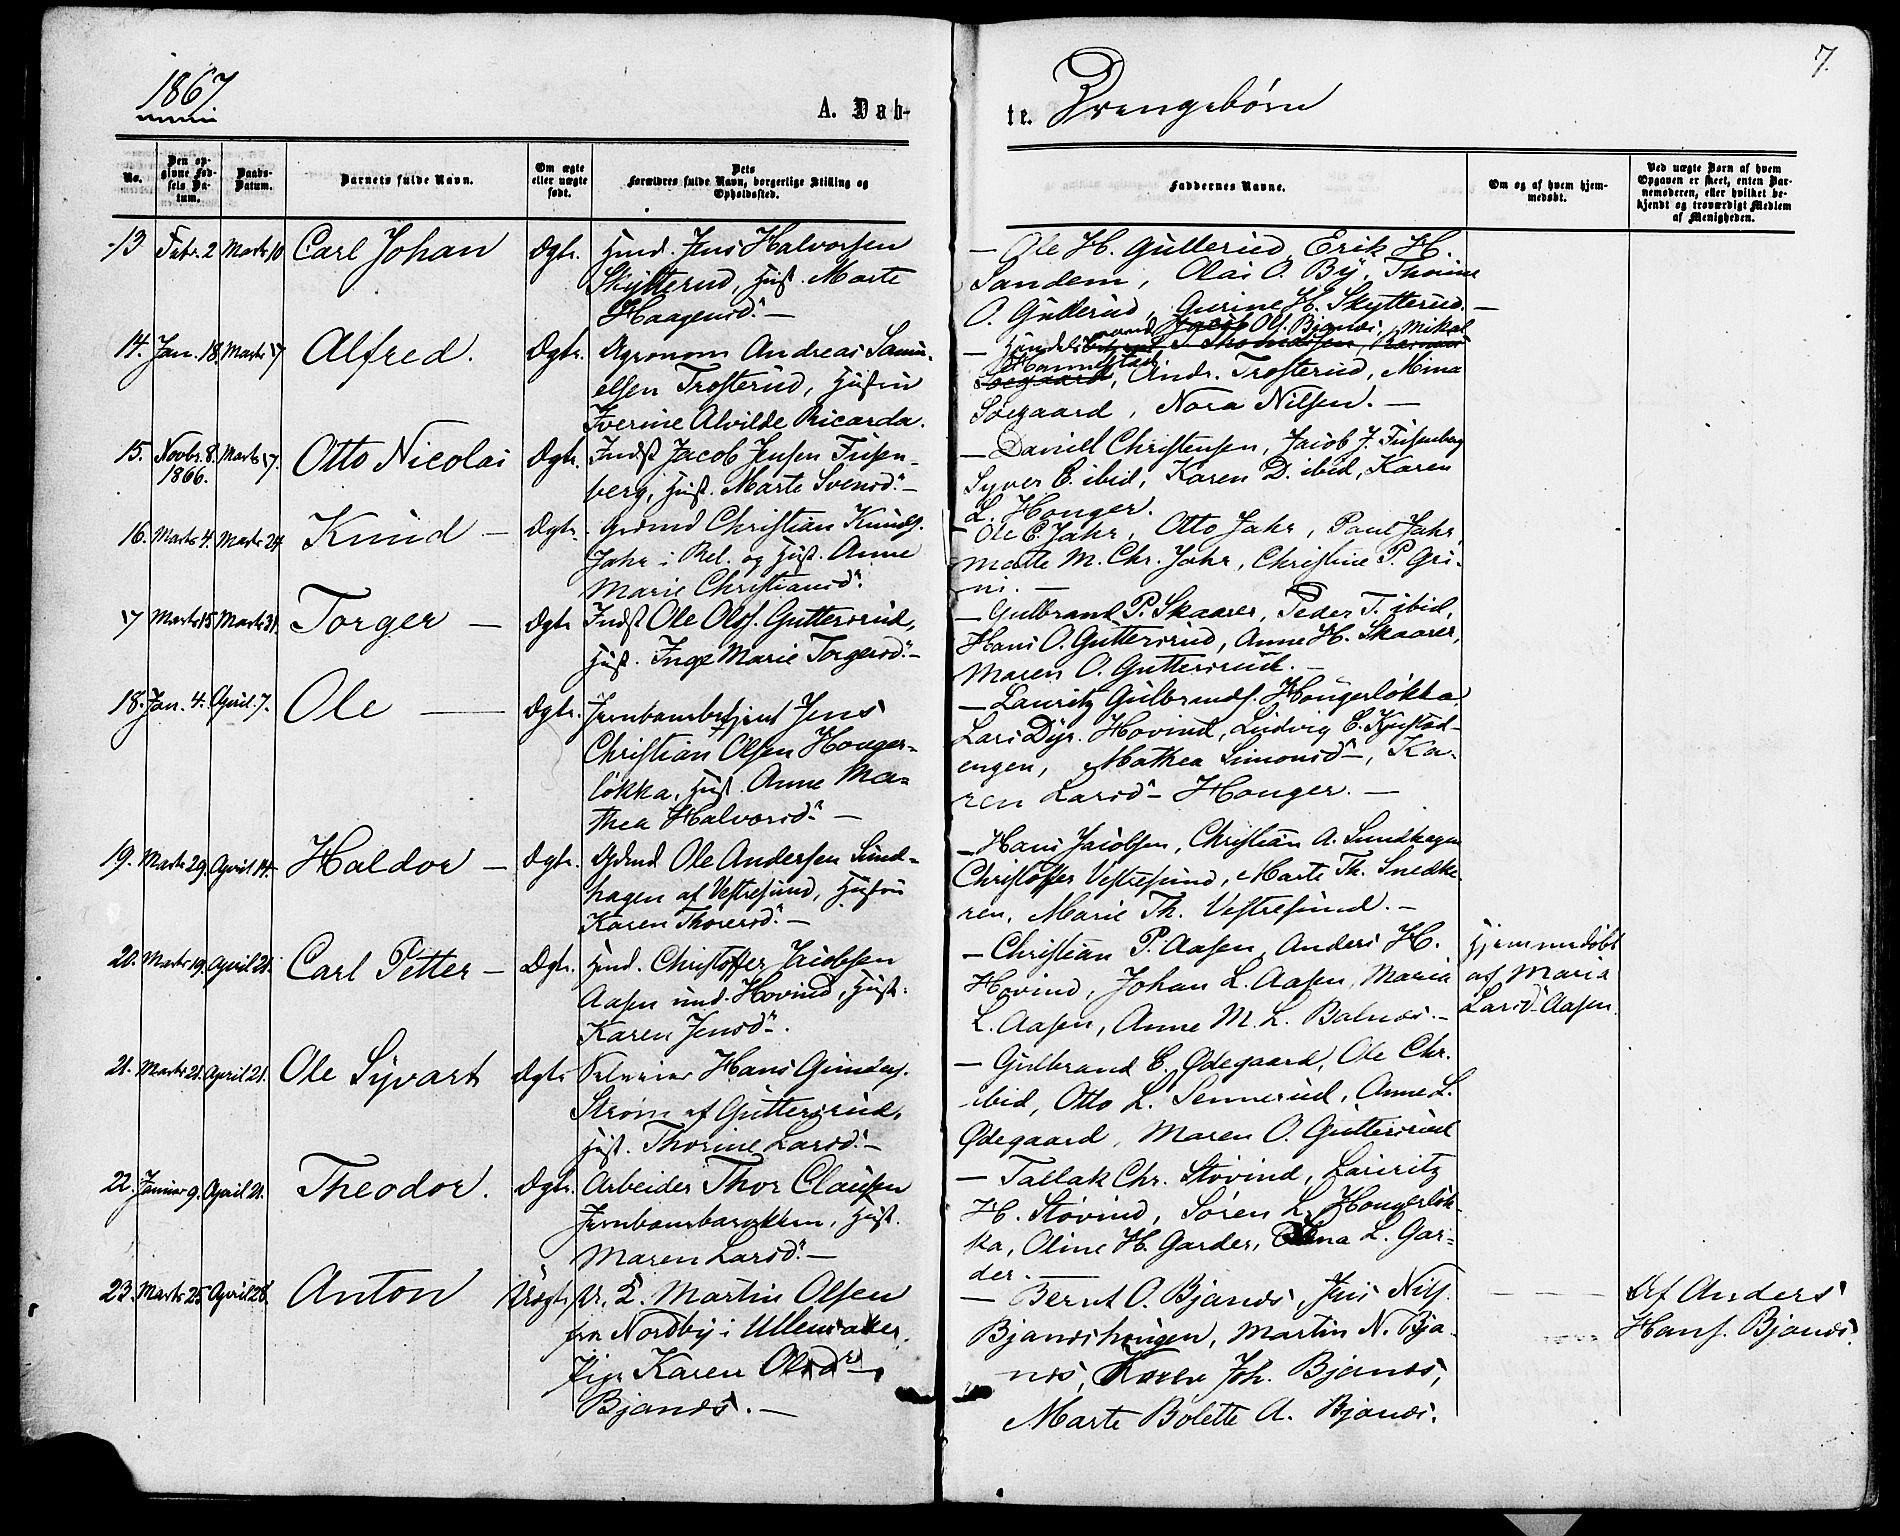 1867.
7.
A. Døb-
te. Drengebørn
No.
Den op-
givne Fød-
sels Da-
tum.
Daabs-
Datum.
Barnets fulde Navn.
Om ægte
eller uægte
født.
Dets
Forældres fulde Navn, borgerlige Stilling og
Opholdssted.
Faddernes Navne.
Om og af hvem hjem-
medøbt.
Ved uægte Børn af hvem
Opgaven er skeet, enten Bar-
nemoderen, eller hvilket be-
kjendt og troværdigt Medlem
af Menigheden.
13. Febr. 2 Marts 10 Carl Johan Ægte. Hmd. Jens Halvorsen
Skytterud, Hust. Marte
Haagensd. —
— Ole H. Gulterud, Erik H.
Sandem, Olai O. By, Thorine
O. Gulterud, Gurine H. Skytterud. —
14. Jan. 18. Marts 17 Alfred. Ægte. Agronom Andreas Samu-
elsen Trosterud, Hustru
Iverine Alvilde Ricarda.
Jacob Ols. Bjanæs, Mikal
Hammelstad
Andr. Trosterud, Mina
Soegaard, Nora Nilsen. —
15. Novbr. 8. 1866. Marts 17. Otto Nicolai Ægte. Indst Jacob Jensen Fusen-
berg, Hust. Marte Svensd. —
— Daniel Christensen, Jacob J. Fusenberg
Syver E. ibid, Karen D. ibid, Karen
L. Honger.
16. Marts 4. Marts 24. Knud — Ægte. Grdmd Christian Knuds.
Jahr i Rel. og Hust. Anne
Marie Christiansd.
— Ole E. Jahr, Otto Jahr, Paul Jahr,
Marte M. Chr. Jahr, Christine P. Gri-
ni. —
17 Marts 15. Marts 31. Torger — Ægte Indst Ole Olss. Guttersrud,
Hust. Inge Marie Torgersd. —
— Gulbrand P. Skaarer, Peder T. ibid,
Hans O. Guttersrud, Anne H. Skaarer,
Maren O. Guttersrud. —
18. Jan. 4. April 7. Ole — Ægte. Jernbanebetjent Jens
Christian Olsen Honger-
løkka, Hust. Anne Ma-
thea Halvorsd. —
— Lauritz Gulbrands. Hongerløkka,
Lars Dyr. Hovind, Ludvig E. Kjystad-
engen, Mathea Simonsd —, Ka-
ren Larsd — Honger. —
19. Marts 29. April 14. Haldor — Ægte. Grdmd Ole Andersen Sund-
hagen af Vestresund, Hustru
Karen Thoresd. —
— Hans Jacobsen, Christian A. Sundhagen
Christoffer Vestresund, Marte Th. Snedke-
ren, Marie Th. Vestresund. —
20. Marts 19. April 21. Carl Petter — Ægte. Hmd. Christoffer Jacobsen
Aasen und. Hovind, Hust.
Karen Jensd —.
— Christian P. Aasen, Anders H.
Hovind, Johan L. Aasen, Maria
L. Aasen, Anne M. L. Balnæs. —
Hjemmedøbt
af Maria
Larsd. Aasen.
21. Marts 21. April 21. Ole Syvart Ægte Selveier Hans Gunders.
Strøm af Guttersrud,
Hust. Thorine Larsd. —
— Gulbrand E. Ødegaard, Ole Chr.
ibid, Otto L. Sennerud, Anne L.
Ødegaard, Maren O. Guttersrud
22. Januar 9. April 21. Theodor. Ægte. Arbeider Thor Clausen
Jernbanebarakken, Hust.
Maren Larsd. —
— Tallak Chr. Støvind, Lauritz
H. Støvind, Søren L. Hongerløk-
ka, Oline H. Garder, L. Gar-
der. —
23. Marts 25. April 28. Anton Uægte U. K. Martin Olsen
fra Nordby i Ullensaker,
Pige Karen Olsd —,
Bjanæs. —
— Bernt O. Bjanæs, Jens Nils.
Bjanæshaugen, Martin N. Bja-
næs, Karen Joh. Bjanæs,
Marte Bolette A. Bjanæs.
— — —
Af Anders
Hans. Bjanæs.